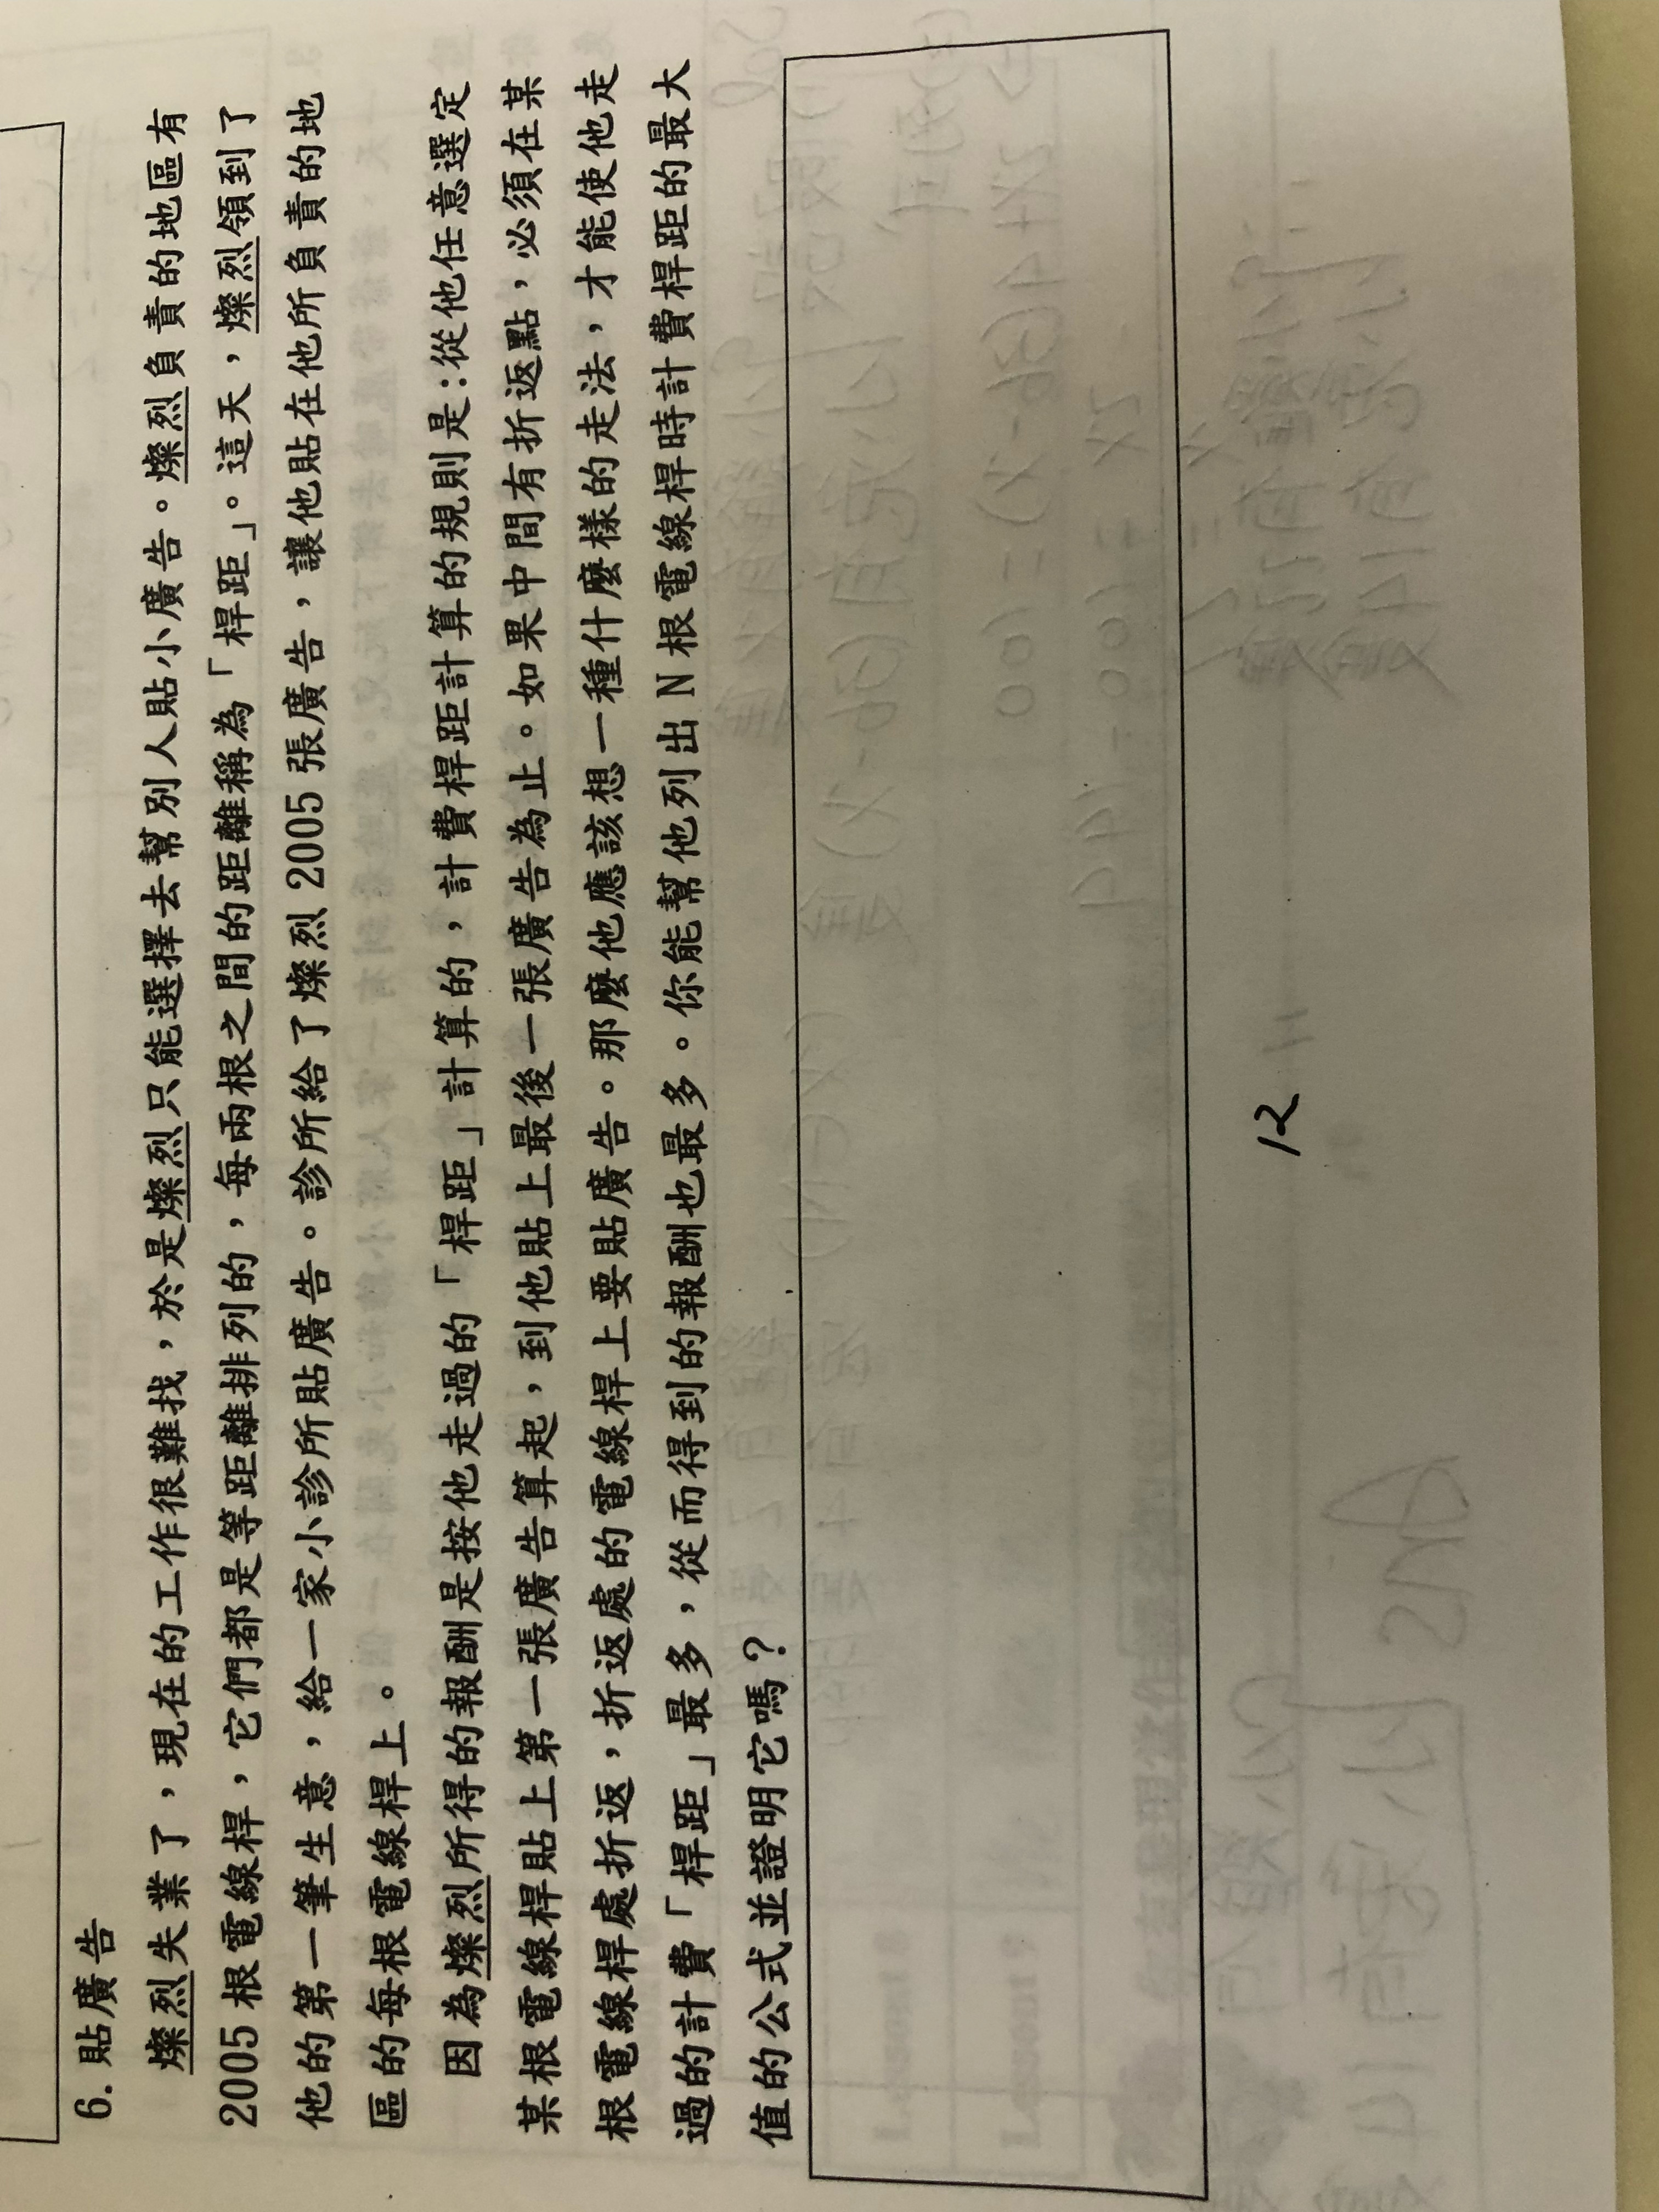 6. 貼廣告
燦烈失業了，現在的工作很難找，於是燦烈只能選擇去幫別人貼小廣告。燦烈負責的地區有
2005根電線桿，它們都是等距離排列的，每兩根之間的距離稱為「桿距」。這天，燦烈領到了
他的第一筆生意，給一家小診所貼廣告。診所給了燦烈2005張廣告，讓他貼在他所負責的地
區的每根電線桿上。
因為燦烈所得的報酬是按他走過的「桿距」計算的，計費桿距計算的規則是：從他任意選定
某根電線桿貼上第一張廣告算起，到他貼上最後一張廣告為止。如果中間有折返點，必須在某
根電線桿處折返，折返處的電線桿上要貼廣告。那麼他應該想一種什麼樣的走法，才能使他走
過的計費「桿距」最多，從而得到的報酬也最多。你能幫他列出N根電線桿時計費桿距的最大
值的公式並證明它嗎？
12